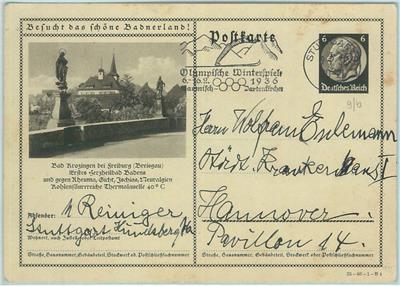 Besucht das schöne Badnerland!
Postkarte
Olympische Winterspiele
6.-16.2. 1936
Garmisch-Partenkirchen
STU
6 6
Deutsches Reich
Bad Krozingen bei Freiburg (Breisgau)
Erstes Herzheilbad Badens
und gegen Rheuma, Gicht, Ischias, Neuralgien
Kohlensäurereiche Thermalquelle 40° C
Absender: Reiniger
Stuttgart
Wohnort, auch Zustell- oder Leitpostamt
Straße, Hausnummer, Gebäudeteil, Stockwerk od. Postschließfachnummer
Herrn Wolfram
Städt. Krankenhaus I
Hannover.
Pavillon 14.
Straße, Hausnummer, Gebäudeteil, Stockwerk oder Postschließfachnummer